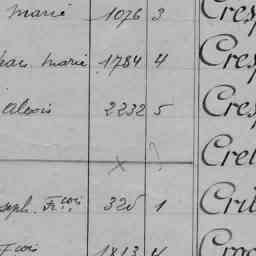 Marie 1076 3 Cresp
Jean Marie 1784 4 Cresp
Alexis 2232 5 Cresp
x ? Cret
seph. Fcois 325 1 Crib
Fcois 1813 4 Croc